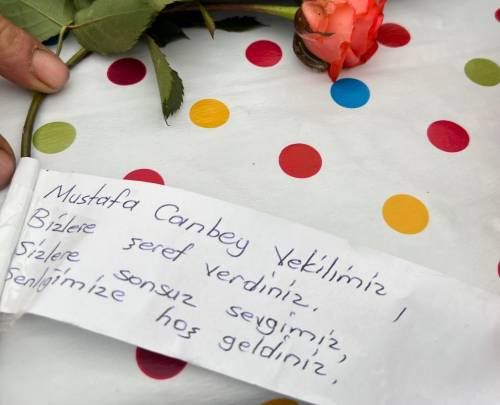 Mustafa Canbey Vekilimiz,
Bizlere şeref verdiniz.
Sizlere sonsuz sevgimiz,
Şenliğimize hoş geldiniz,